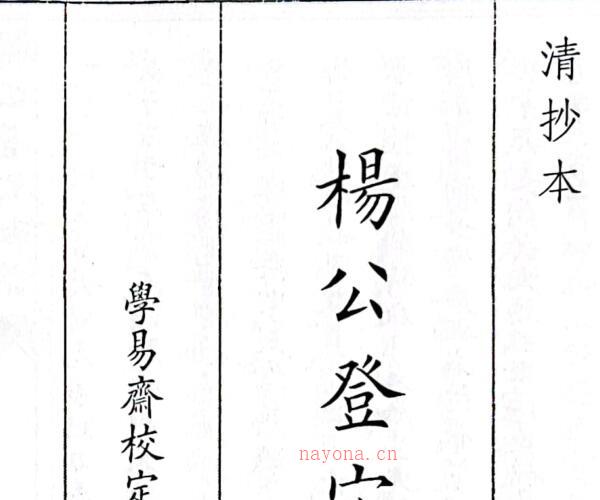 清抄本
楊公登
學易齋校定
nayona.cn